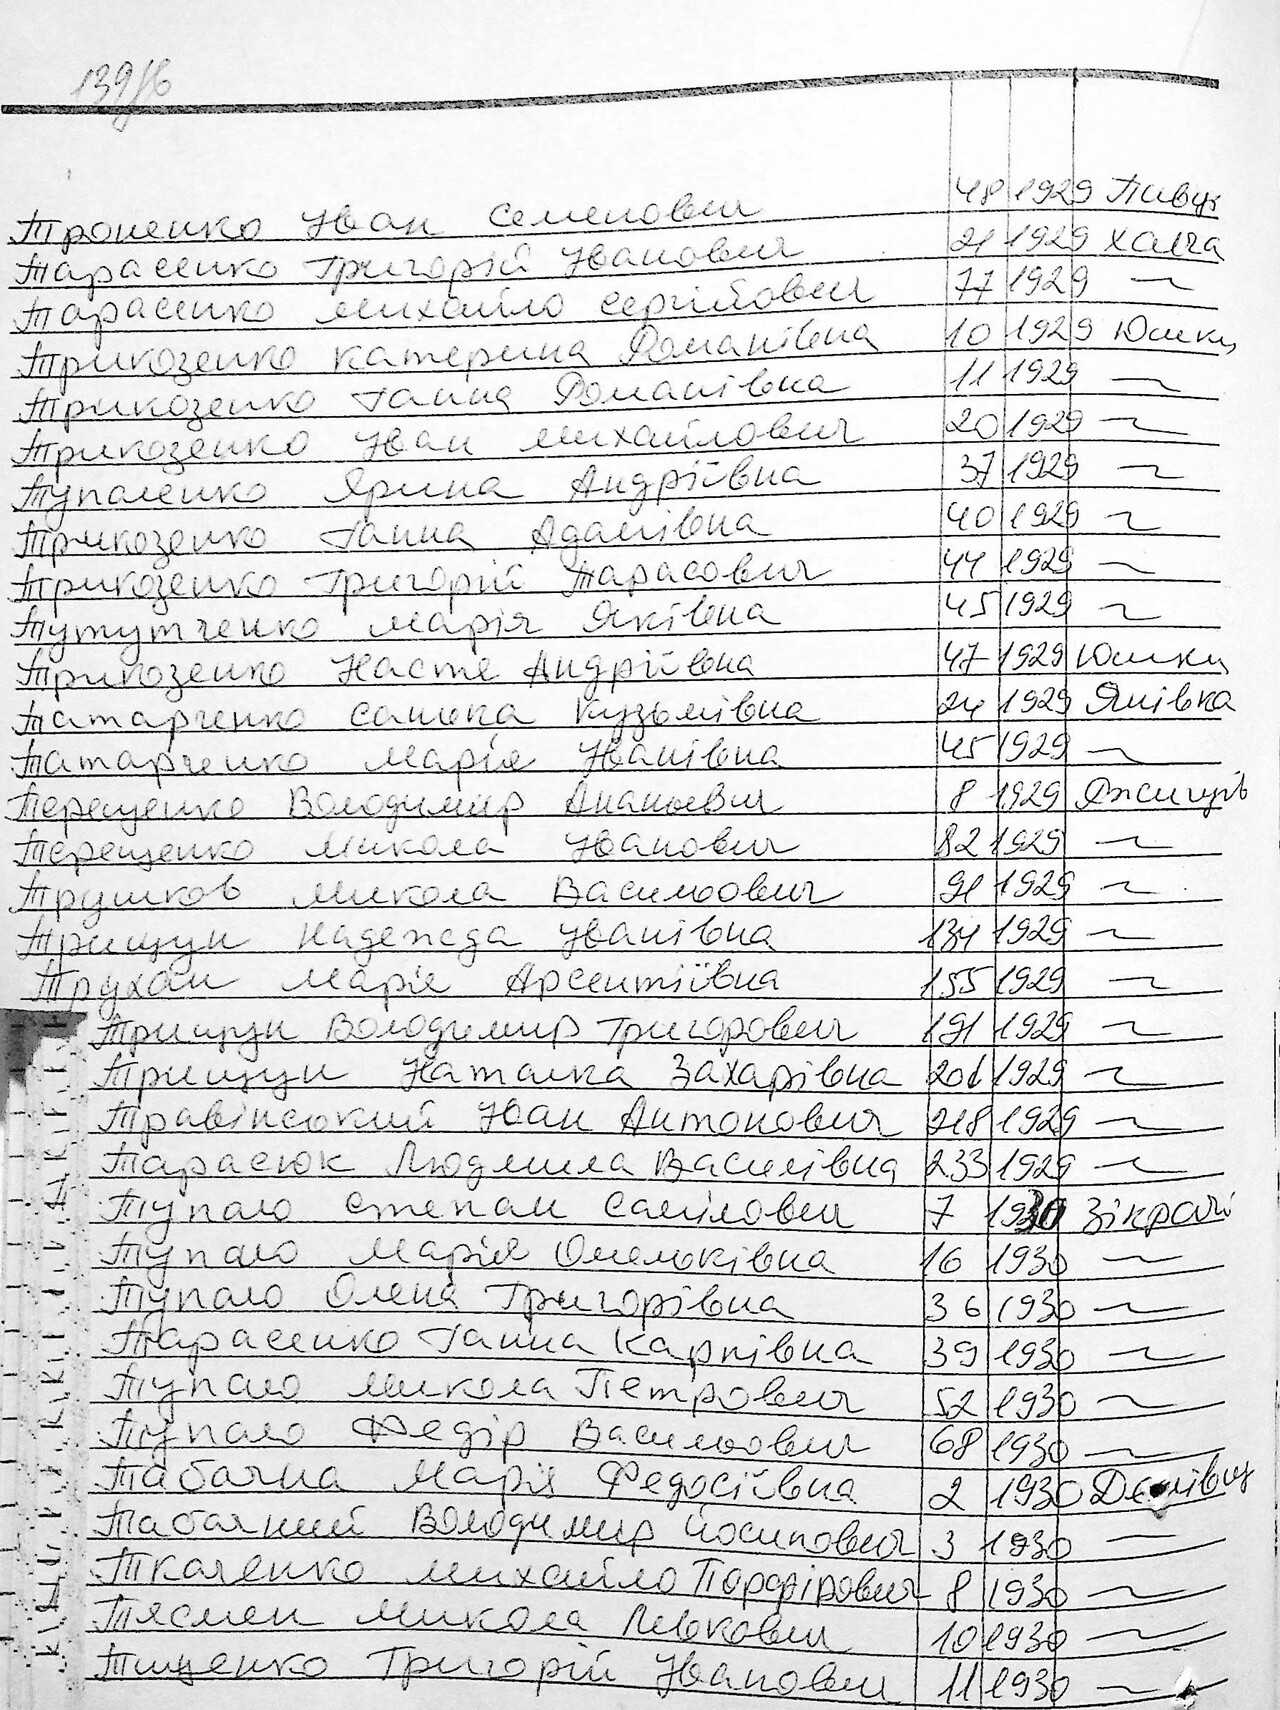 139/16
Троненко Іван Семенович 48 1929 Пивці
Тарасенко Григорій Іванович 21 1929 Халча
Тарасенко Михайло Сергійович 77 1929 ~
Трикозенко Катерина Романівна 10 1929 Юшки
Трикозенко Ганна Романівна 11 1929 ~
Трикозенко Іван Михайлович 20 1929 ~
Тупаленко Ярина Андріївна 37 1929 ~
Трикозенко Ганна Адамівна 40 1929 ~
Трикозенко Григорій Тарасович 44 1929 ~
Тутутченко Марія Яківна 45 1929 ~
Трикозенко Настя Андріївна 47 1929 Юшки
Татарченко Санька Кузьмівна 24 1929 Янівка
Татарченко Марія Іванівна 45 1929 ~
Терещенко Володимир Ананьевич 8 1929 Ржищів
Терещенко Микола Іванович 82 1929 ~
Трушков Микола Васильович 91 1929 ~
Трищун Надежда Іванівна 134 1929 ~
Трухан Марія Арсентіївна 155 1929 ~
Трищун Володимир Григорович 191 1929 ~
Трищун Наталка Захарівна 201 1929 ~
Травінський Іван Антонович 218 1929 ~
Тарасюк Людмила Василівна 233 1929 ~
Тупало Степан Самілович 7 1930 Зікрачі
Тупало Марія Омельківна 16 1930 ~
Тупало Олена Григорівна 36 1930 ~
Тарасенко Ганна Карпівна 39 1930 ~
Тупало Микола Петрович 52 1930 ~
Тупало Федір Васильович 68 1930 ~
Табачна Марія Федосіївна 2 1930
Табачний Володимир Йосипович 3 1930 ~
Ткаченко Михайло Порфірович 8 1930 ~
Тясмен Микола Левкович 10 1930 ~
Тищенко Григорій Іванович 11 1930 ~